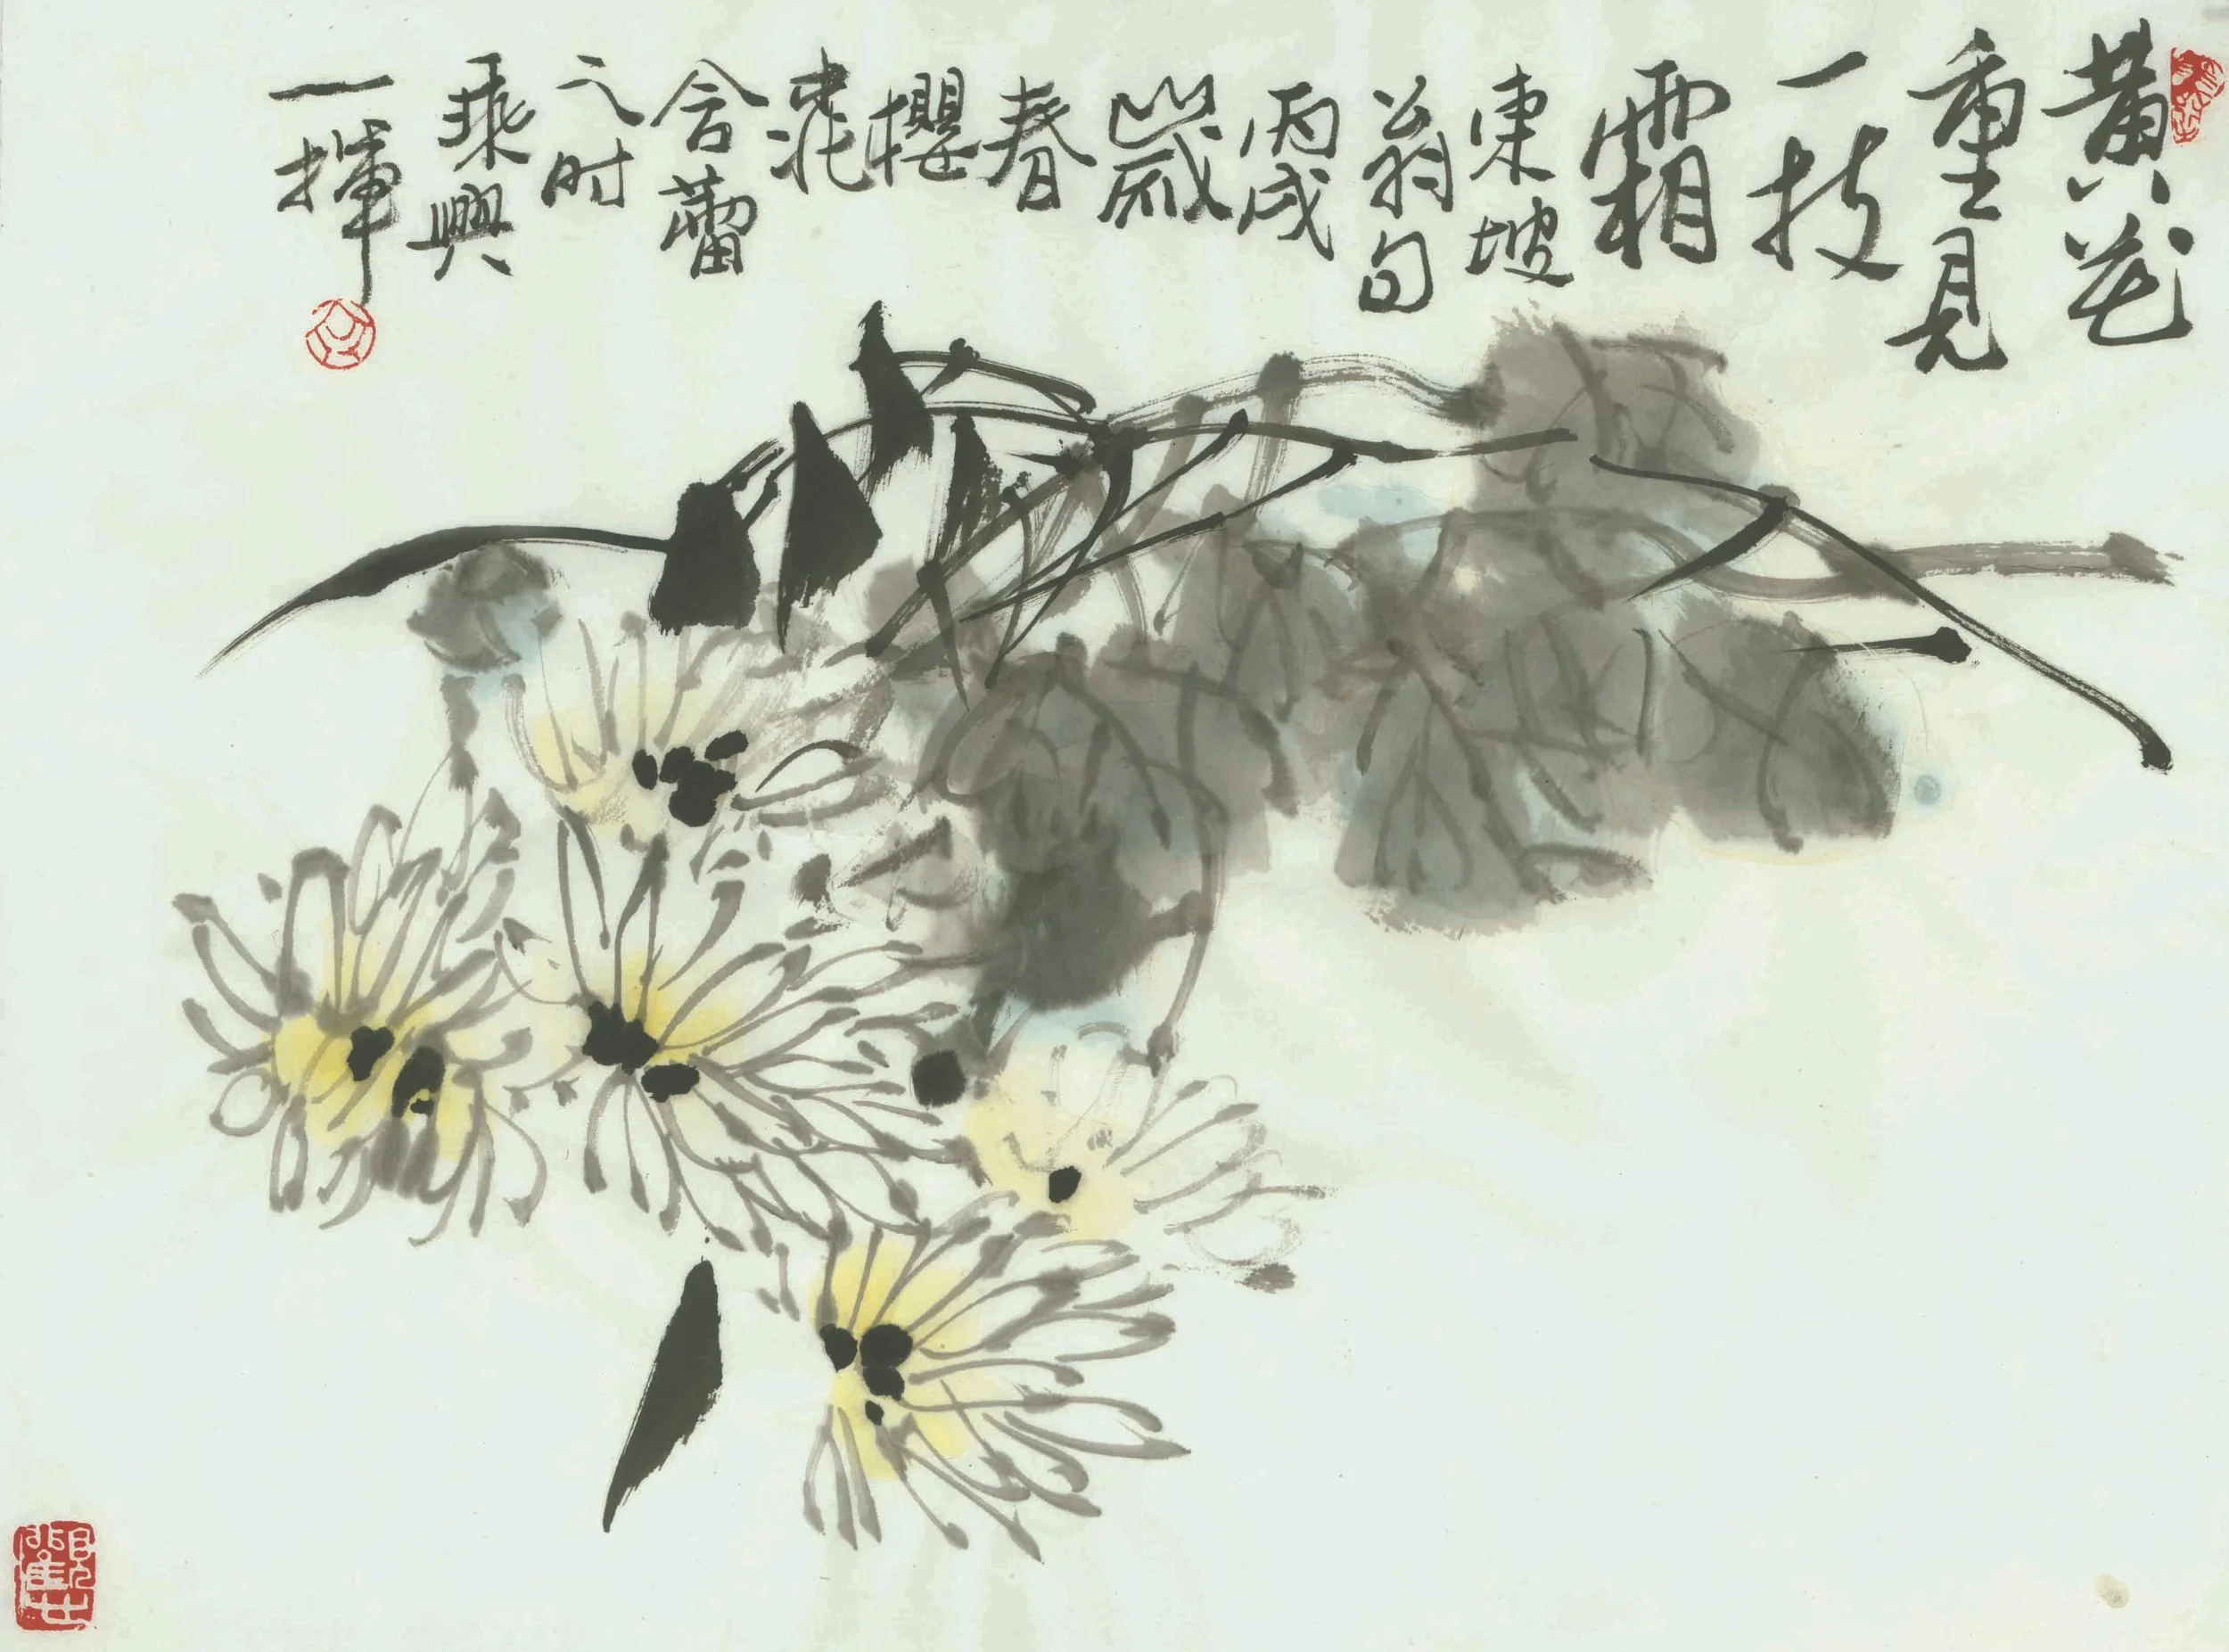 黄花
重見
一枝
霜
東坡
翁句
丙戌
嵗
春
櫻
桃
含蕾
之时
乘興
一揮